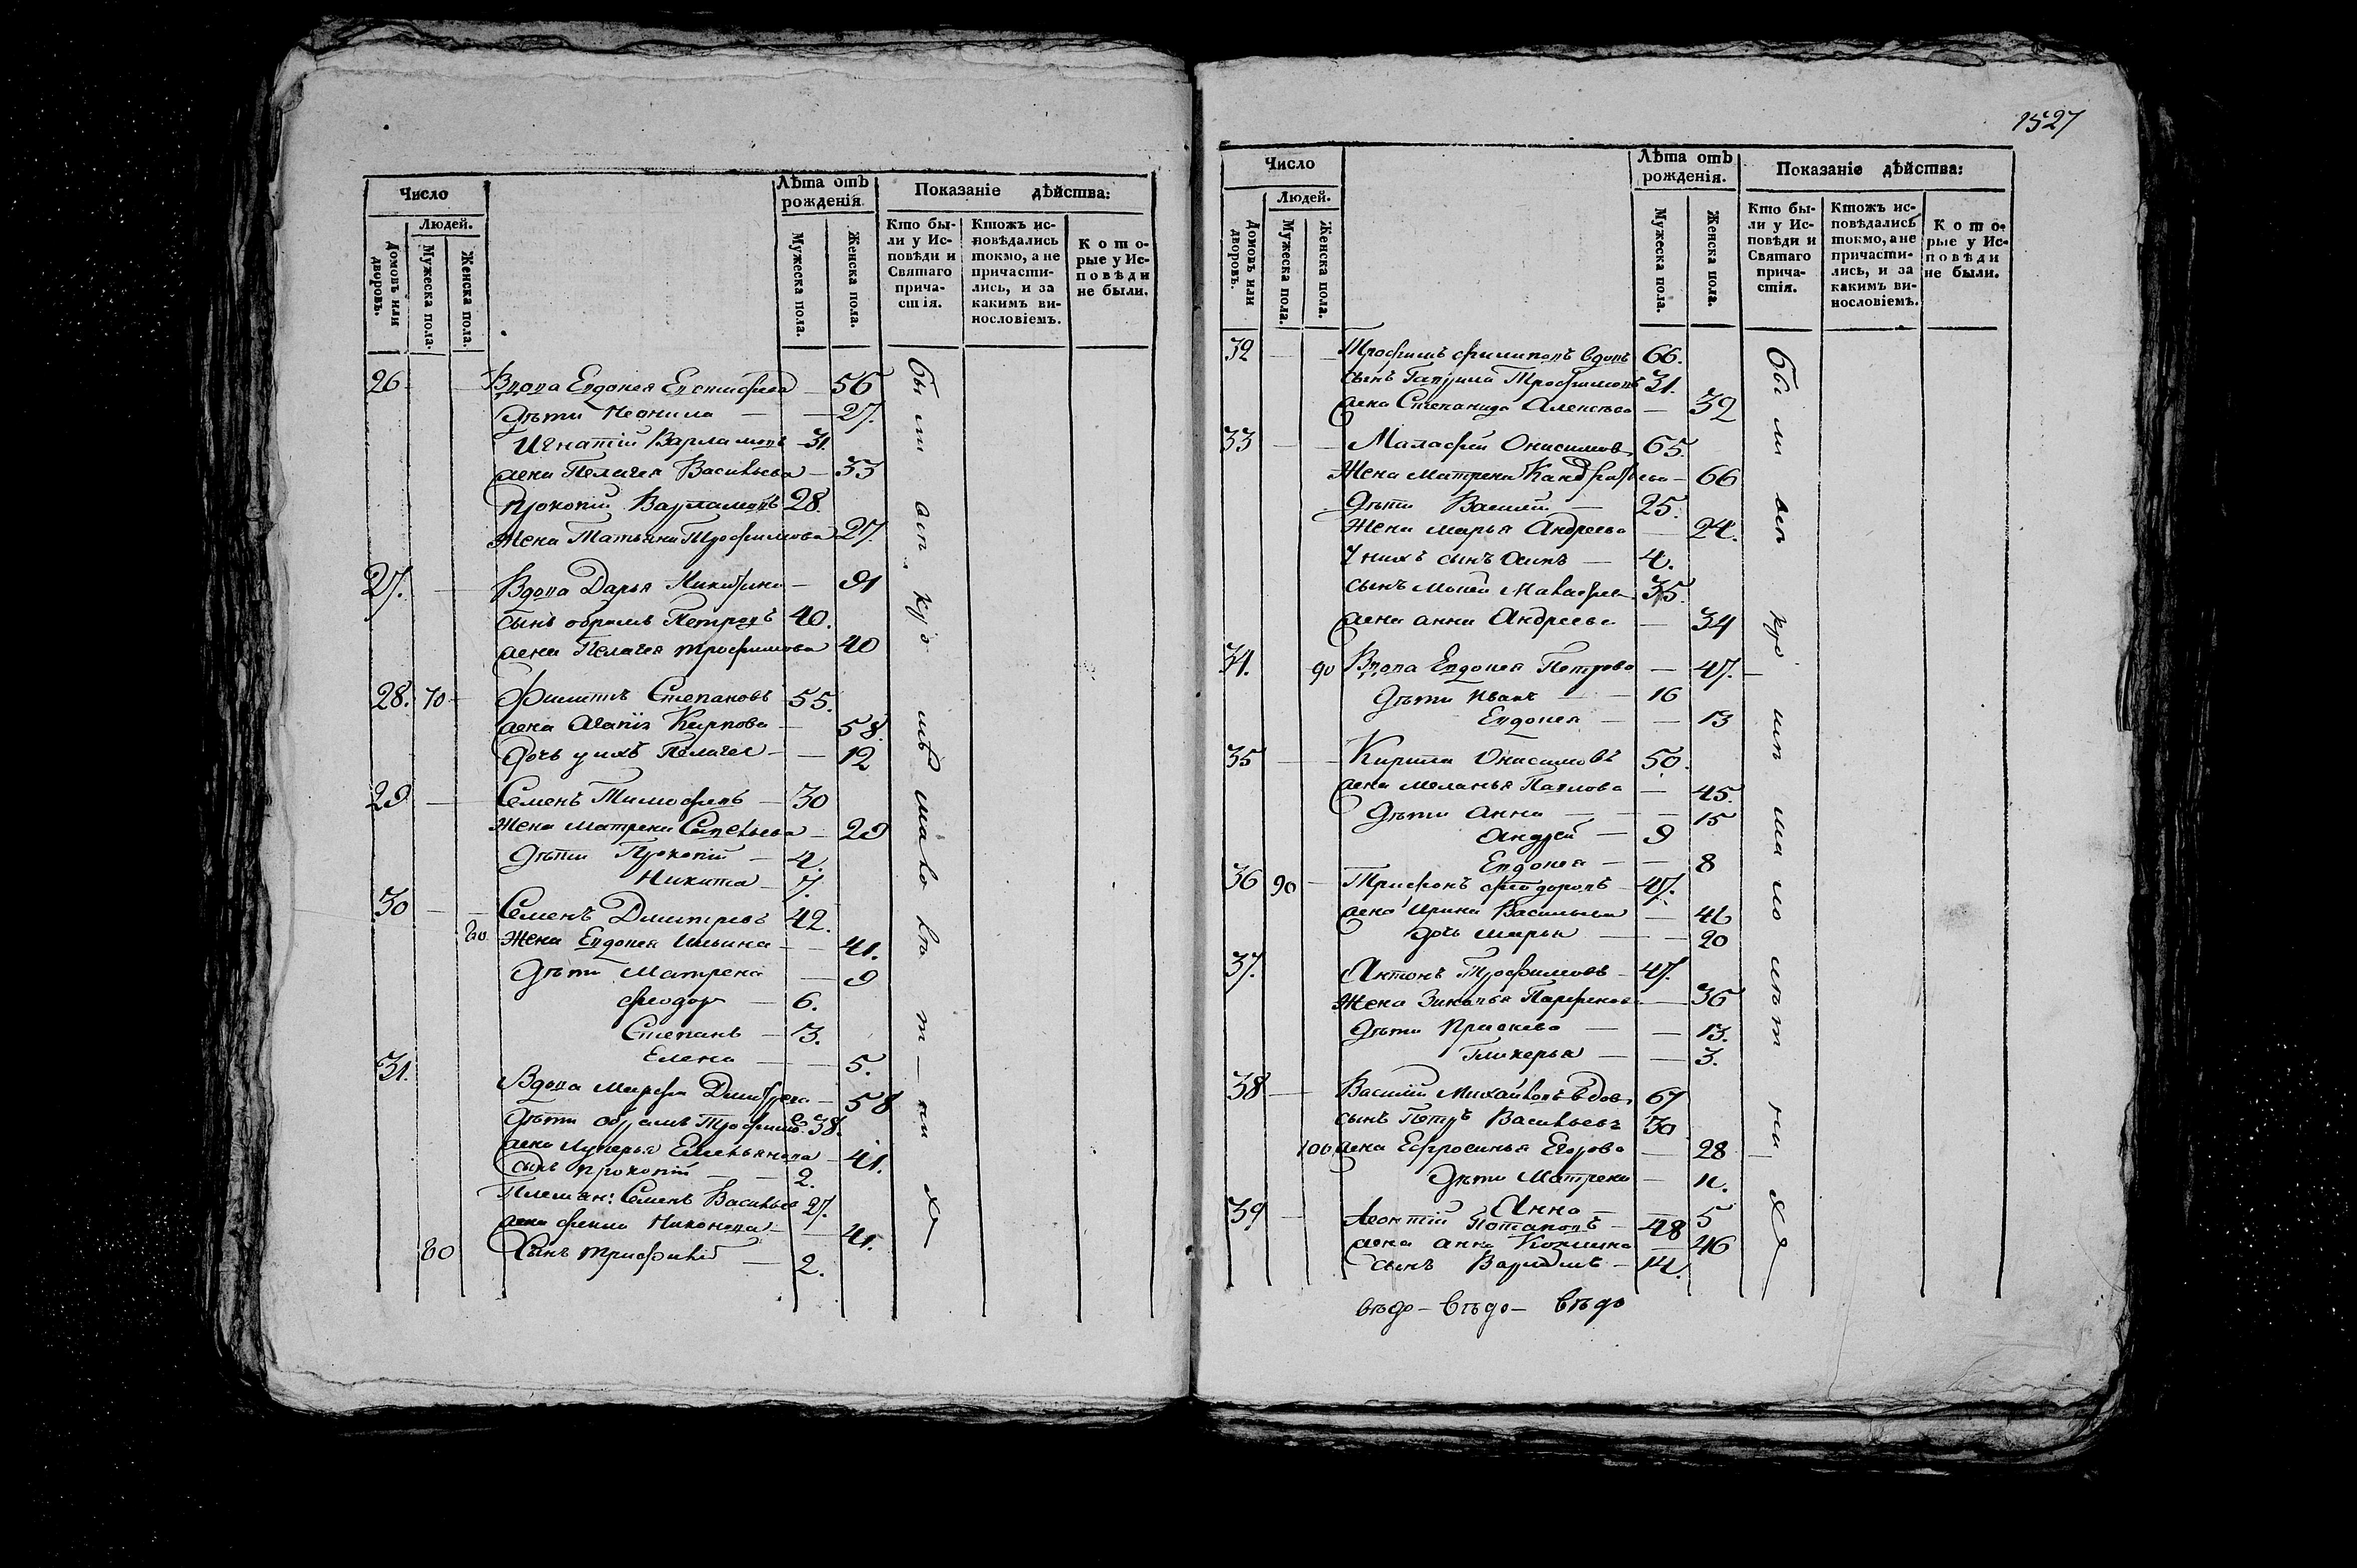 Число
Лѣта отъ рожденія.
Показаніе дѣйства:
Людей.
Домовъ или дворовъ.
Мужеска пола.
Женска пола.
Мужеска пола.
Женска пола.
Кто бы-
ли у Ис-
повѣди и
Святаго
прича-
стія.
Ктожъ ис-
повѣдались
токмо, а не
причасти-
лись, и за
какимъ ви-
нословіемъ.
Кото-
рые у Ис-
повѣди
не были.
26. Вдова Евдокея Евстифева — 56
Дѣти Неонила — — 27.
Игнатій Варламовъ — 31.
жена Пелагея Васильева — 33
Прокопій Варламовъ 28.
Жена Татьяна Трофимова 27.
27. Вдова Дарья Никитина — 91
сынъ обрамъ Петровъ 40.
жена Пелагея трофимова 40
28. 70 Филиппъ Степановъ 55.
жена Агапія Карпова — 58.
Дочь у ихъ Пелагея — — 12
29 — Семенъ Тимофеевъ — 30
Жена матрена Савельева — 29
Дѣти Прокопій — 4.
Никита — 7.
30 — Семенъ Дмитревъ 42.
80 Жена Евдокея Ильина — — 41.
Дѣти Матрена — 9
Феодор — 6.
Степанъ — 3.
Елена — — 5.
31. Вдова Марфа Дмитрева — 58
Дѣти обрамъ Трофимо. 38.
жена Лукерья Емельянова — 41.
сынъ прокопій — — 2.
Племян: Семенъ Васильев 27.
жена Фекла Никонова — 41.
80 Сынъ Трифилій — 2.
были
1527
Число
Лѣта отъ рожденія.
Показаніе дѣйства:
Людей.
Домовъ или дворовъ.
Мужеска пола.
Женска пола.
Мужеска пола.
Женска пола.
Кто бы-
ли у Ис-
повѣди и
Святаго
прича-
стія.
Ктожъ ис-
повѣдались
токмо, а не
причасти-
лись, и за
какимъ ви-
нословіемъ.
Кото-
рые у Ис-
повѣди
не были.
32 — Трофимъ филиповъ вдовъ 66.
сынъ Гаврила Трофимовъ 31.
жена Степанида Алексѣева — 32
33 — Малафей Онисимов. 65.
Жена матрена Кандратьева — 66
Дѣти Василій — 25.
Жена марья Андреева — 24.
У нихъ сынъ — 4.
сынъ Малафеев. 35.
жена анна Андреева — 34
34. 90 Вдова Евдокея Петрова — 47.
Дѣти Иванъ — — 16
Евдокея — — 13
35 — Кирила Онисимовъ 50.
жена меланья Павлова — 45.
Дѣти Анна — — 15
Андрей — 9
Евдокея — — 8
36 90 — Трифонъ Феодоровъ — 47.
жена Ирина Васильева — 46
Дочь марья — — 20
37. Антонъ Трофимовъ — 47.
Жена Зиновья Парфенова — 36
Дѣти Прасковья — — 13.
Гликерья — — 3.
38 — Василій Михайловъ вдов. 67
сынъ Петръ Васильевъ 30
100 жена Ефросинья Егорова — 28
Дѣти Матрена — 11.
Анна — 5
39 — Леонтій Потаповъ — 48
жена анна Козмина — 46
сынъ Варламъ — 14.
были
вѣдо — вѣдо — вѣдо